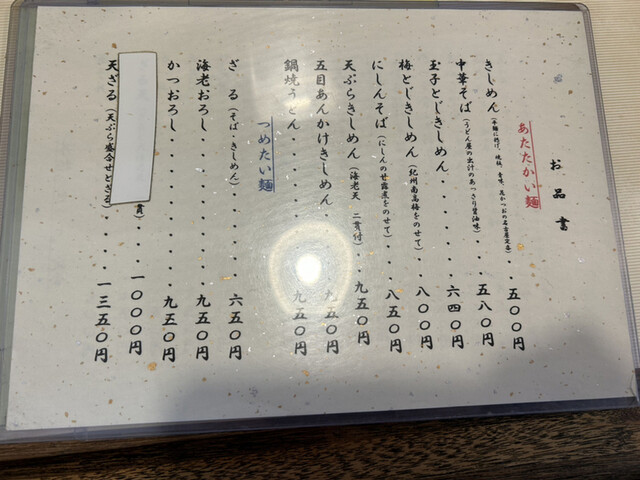 お品書
あたたかい麺
きしめん(、花かつおの名古屋定番)・・五〇〇円
中華そば(うどん屋の出汁のあっさり醤油味)・・五八〇円
玉子とじきしめん・・・・・・・六四〇円
梅とじきしめん(紀州南高梅をのせて)・・・八〇〇円
にしんそば(にしんの甘露煮をのせて)・・・八五〇円
天ぷらきしめん(海老天 二貫付)・・・九五〇円
五目あんかけきしめん・・・・・九五〇円
鍋焼うどん・・・・・・・・九五〇円
つめたい麺
ざる(そば・きしめん)・・・・・六五〇円
海老おろし・・・・・・・・九五〇円
かつおろし・・・・・・・・九五〇円
貫)・・・一〇〇〇円
天ざる(天ぷら盛合せとざる)・・・・一三五〇円